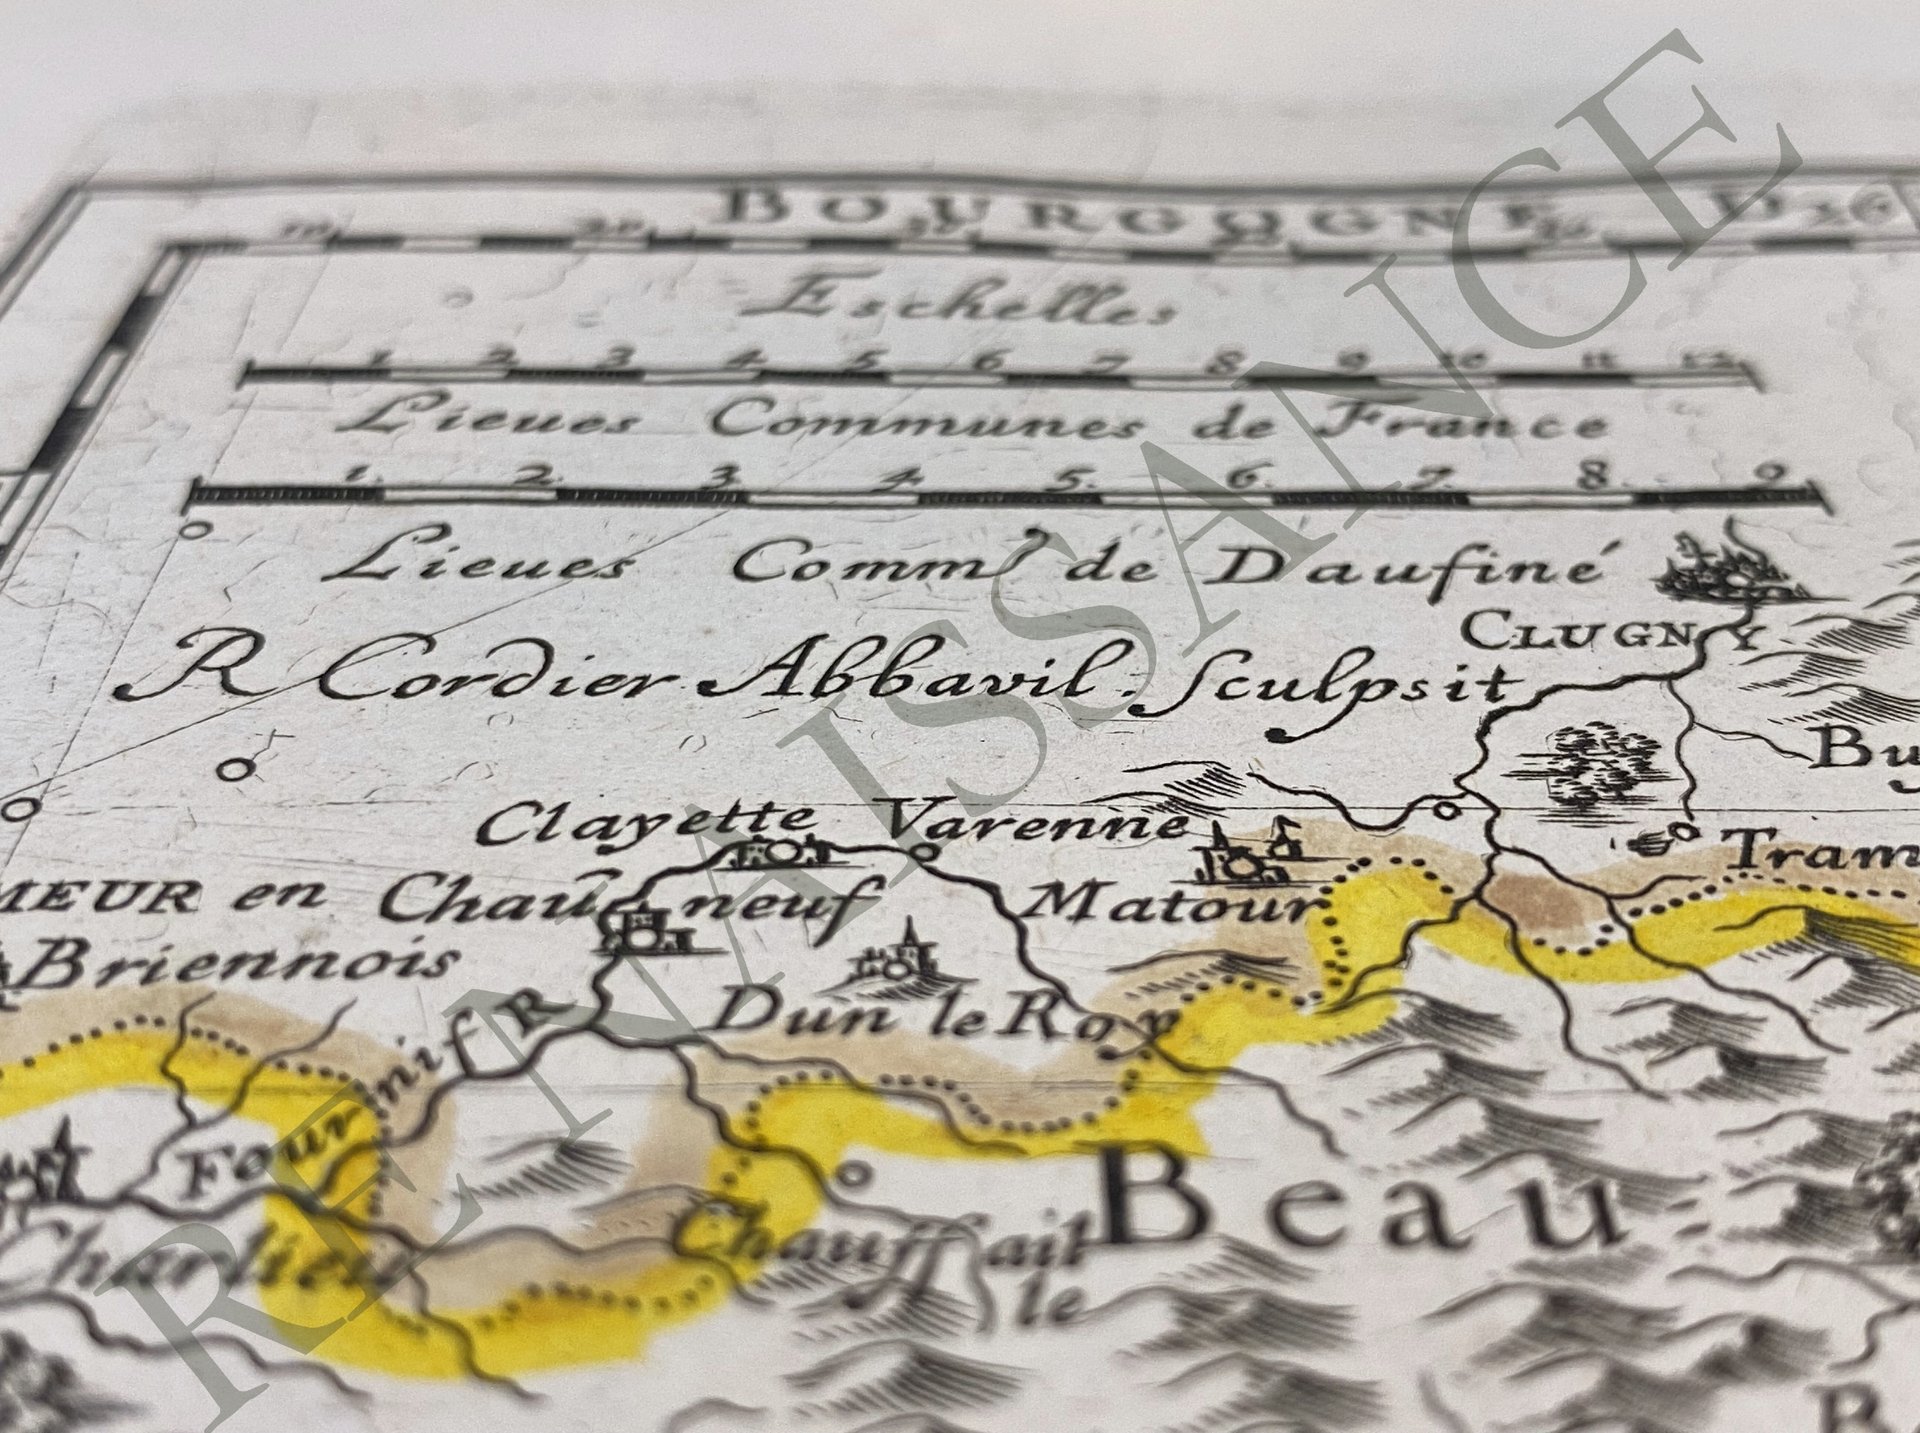 BOURGOGNE
10 20 30
Eschelles
1 2 3 4 5 6 7 8 9 10 11 12
Lieues Communes de France
1. 2. 3. 4. 5. 6. 7. 8. 9
Lieues Comm.s de Daufiné
CLUGNY
R Cordier Abbavil. Sculpsit
Clayette Varenne
Tram
MEUR en Chauneuf Matour
Briennois
Dun le Roy
Fournif R
Beau
Charlieu
Chauffailt
le
RENAISSANCE